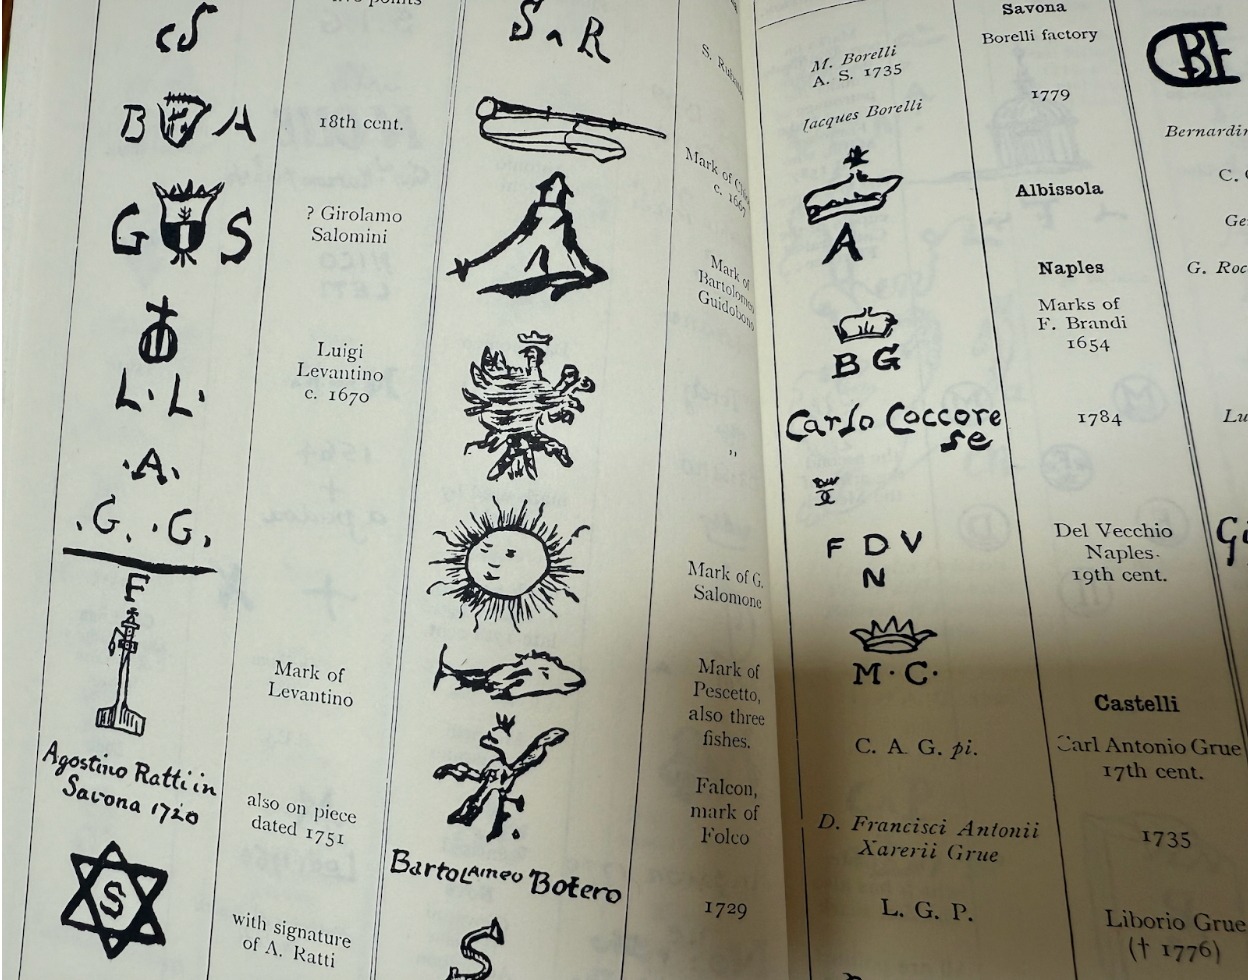 points
cS
B A
18th cent.
G S
? Girolamo
Salomini
L. L.
Luigi
Levantino
c. 1670
.A.
.G. .G.
F
Mark of
Levantino
Agostino Ratti in
Savona 1720
also on piece
dated 1751
S
with signature
of A. Ratti
S a R
S.
Mark of
c. 1667
Mark of
Bartolomeo
Guidobono
„
Mark of G.
Salomone
Mark of
Pescetto,
also three
fishes.
F.
Falcon,
mark of
Folco
Bartolameo Botero
1729
S
M. Borelli
A. S. 1735
Jacques Borelli
A
B G
Carlo Coccore
se
F D V
N
M. C.
C. A. G. pi.
D. Francisci Antonii
Xarerii Grue
L. G. P.
Savona
Borelli factory
1779
Albissola
Naples
Marks of
F. Brandi
1654
1784
Del Vecchio
Naples.
19th cent.
Castelli
Carl Antonio Grue
17th cent.
1735
Liborio Grue
(† 1776)
Bernardin
C.
Ge
G. Roc
Lu
Gi